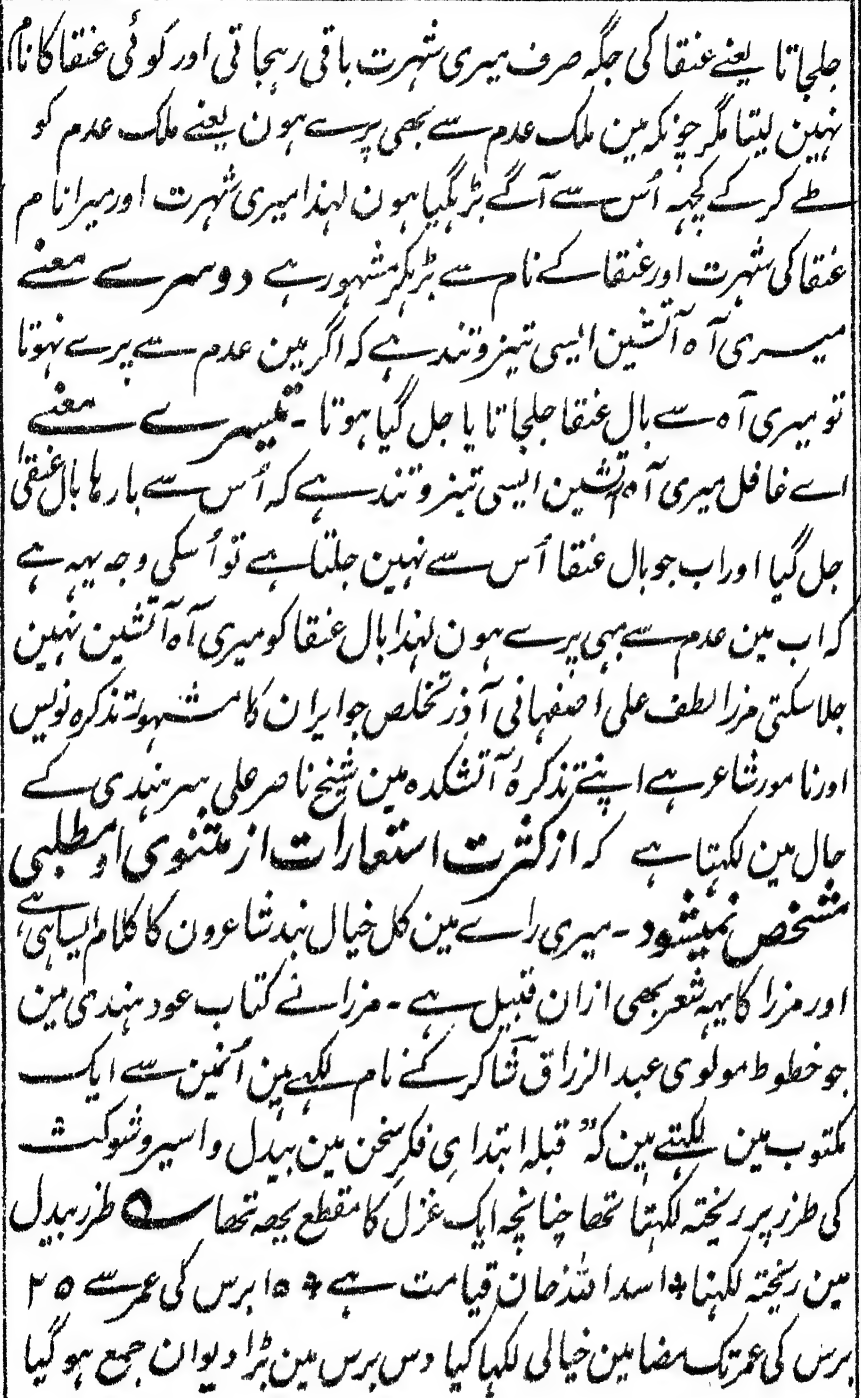 جلجاتا یعنے عنقا کی جگہ صرف میری شہرت باقی رہجاتی اور کوئی عنقا کا نام
نہین لیتا مگر چونکہ مین ملک عدم سے بھی پرے ہون یعنے ملک عدم کو
طے کر کے کچہہ اُس سے آگے بڑہگیا ہون لہذا میری شہرت اور میرا نام
عنقا کی شہرت اور عنقا کے نام سے بڑہکر مشہور ہے دوسرے معنے
میری آہ آتشین ایسی تیز و تند ہے کہ اگر مین عدم سے پرے نہوتا
تو میری آہ سے بال عنقا جلجاتا یا جل گیا ہوتا ۔ تیسرے معنے
اے غافل میری آہ آتشین ایسی تیز و تند ہے کہ اُس سے بارہا بال عنقا
جل گیا اور اب جو بال عنقا اُس سے نہین جلتا ہے تو اُسکی وجہ یہہ ہے
کہ اب مین عدم سے بہی پرے ہون لہذا بال عنقا کو میری آہ آتشین نہین
جلا سکتی مرزا لطف علی اصفہانی آذر تخلص جو ایران کا مشہور تذکرہ نویس
اور نامور شاعر ہے اپنے تذکرۂ آتشکدہ مین شیخ ناصر علی سرہندی کے
حال مین لکہتا ہے کہ از کثرت استعارات از مثنوی او مطلبی
مشخص نمیشود ۔ میری راے مین کل خیال بند شاعرون کا کلام ایسا ہی ہے
اور مرزا کا یہہ شعر بھی ازان قبیل ہے ۔ مرزا نے کتاب عود ہندی مین
جو خطوط مولوی عبد الرزاق شاکر کے نام لکہے ہین اُنہین سے ایک
مکتوب مین لکہتے ہین کہ ” قبلہ ابتدای فکر سخن مین بیدل و اسیر و شوکت
کی طرز پر ریختہ لکہتا تھا چنانچہ ایک غزل کا مقطع یہہ تھا ؎ طرز بیدل
مین ریختہ لکہنا ٭ اسد اللہ خان قیامت ہے ٭ ۱۵ برس کی عمر سے ۲۵
برس کی عمر تک مضامین خیالی لکہا کیا دس برس مین بڑا دیوان جمع ہو گیا